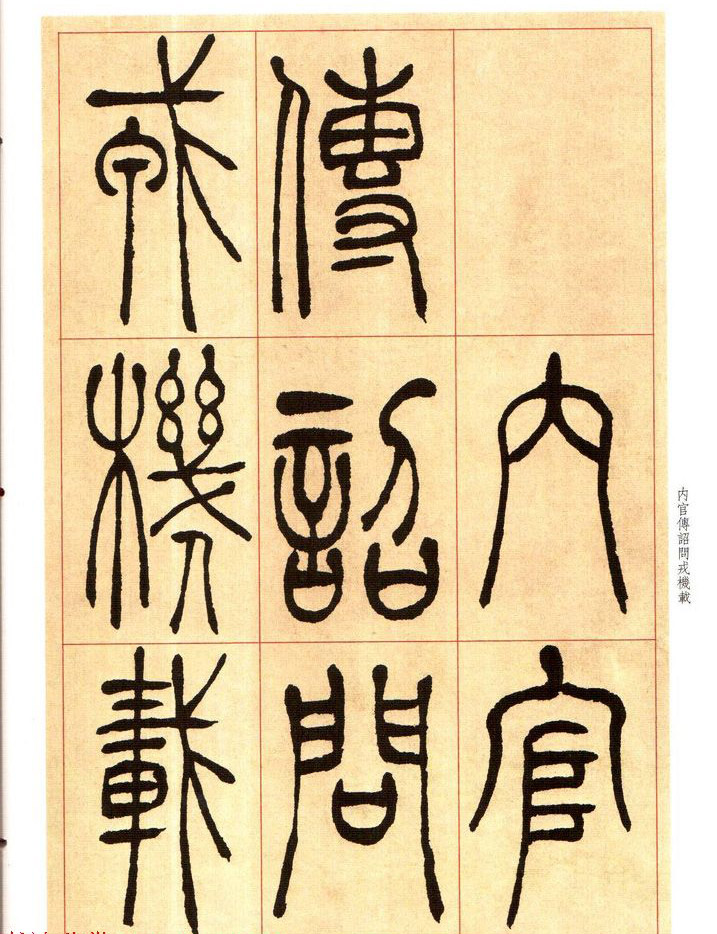 内官
傳詔問
戎機載
内官傳詔問戎機載